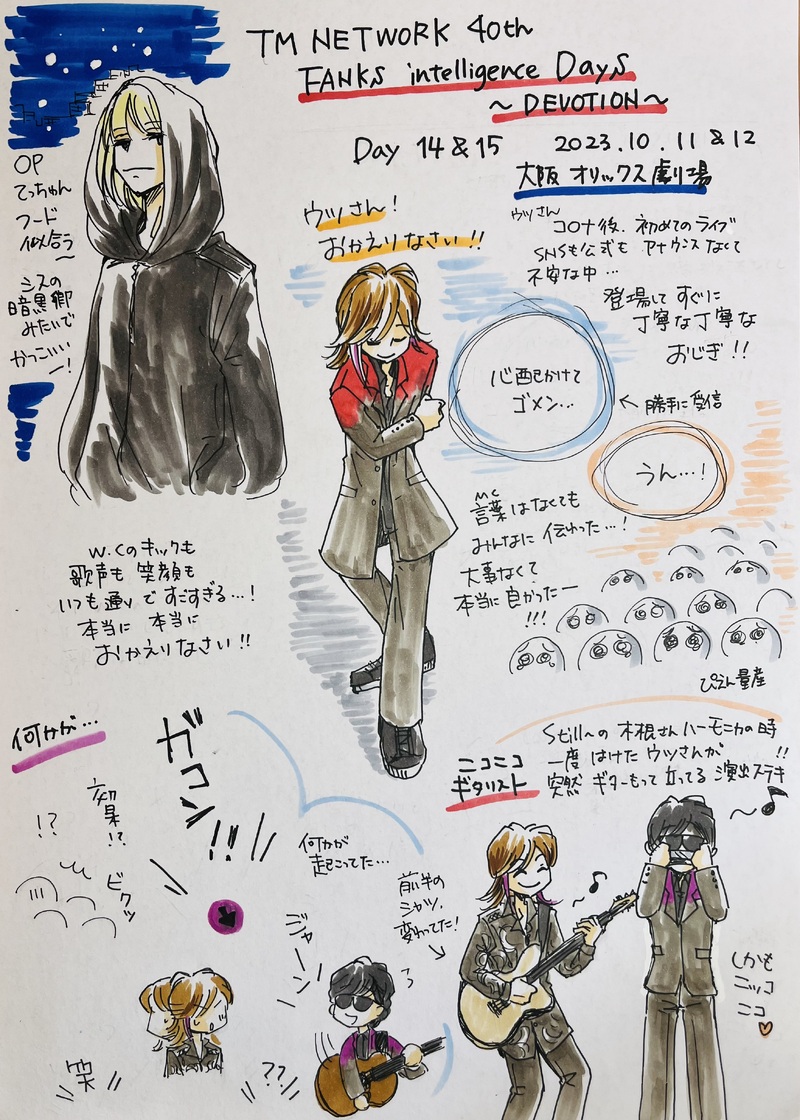 TM NETWORK 40th
FANKS intelligence Days
~ DEVOTION ~
Day 14 & 15 2023.10.11 & 12
大阪 オリックス劇場
OP
てっちゃん
フード
似合う
〜
シスの
暗黒卿
みたいで
かっこいい
ー!
ウツさん!
おかえりなさい!!
ウツさん
コロナ後、初めてのライブ
SNSも公式も アナウンスなくて
不安な中…
登場して すぐに
丁寧な丁寧な
おじぎ!!
心配かけて
ゴメン…
← 勝手に受信
うん…!
MC
言葉はなくても
みんなに 伝わった…!
大事なくて
本当に良かったー
!!!
ぴえん量産
W.Cのキックも
歌声も 笑顔も
いつも通りですごすぎる…!
本当に 本当に
おかえりなさい!!
何かが…
ガコン!!
効果!?
!?
ビクッ
何かが
起こってた…
ジャーン
笑
??
前半の
シャツ、
変わってた!
ニコニコ
ギタリスト
Still〜の 木根さんハーモニカの時
一度 はけた ウツさんが
突然 ギターもって 立ってる 演出ステキ!!
〜♪
♪
しかも
ニッコ
ニコ